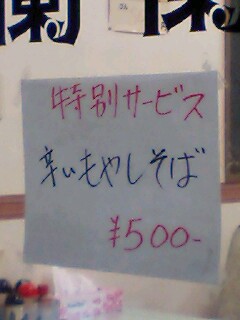 特別サービス
辛いもやしそば
¥500-